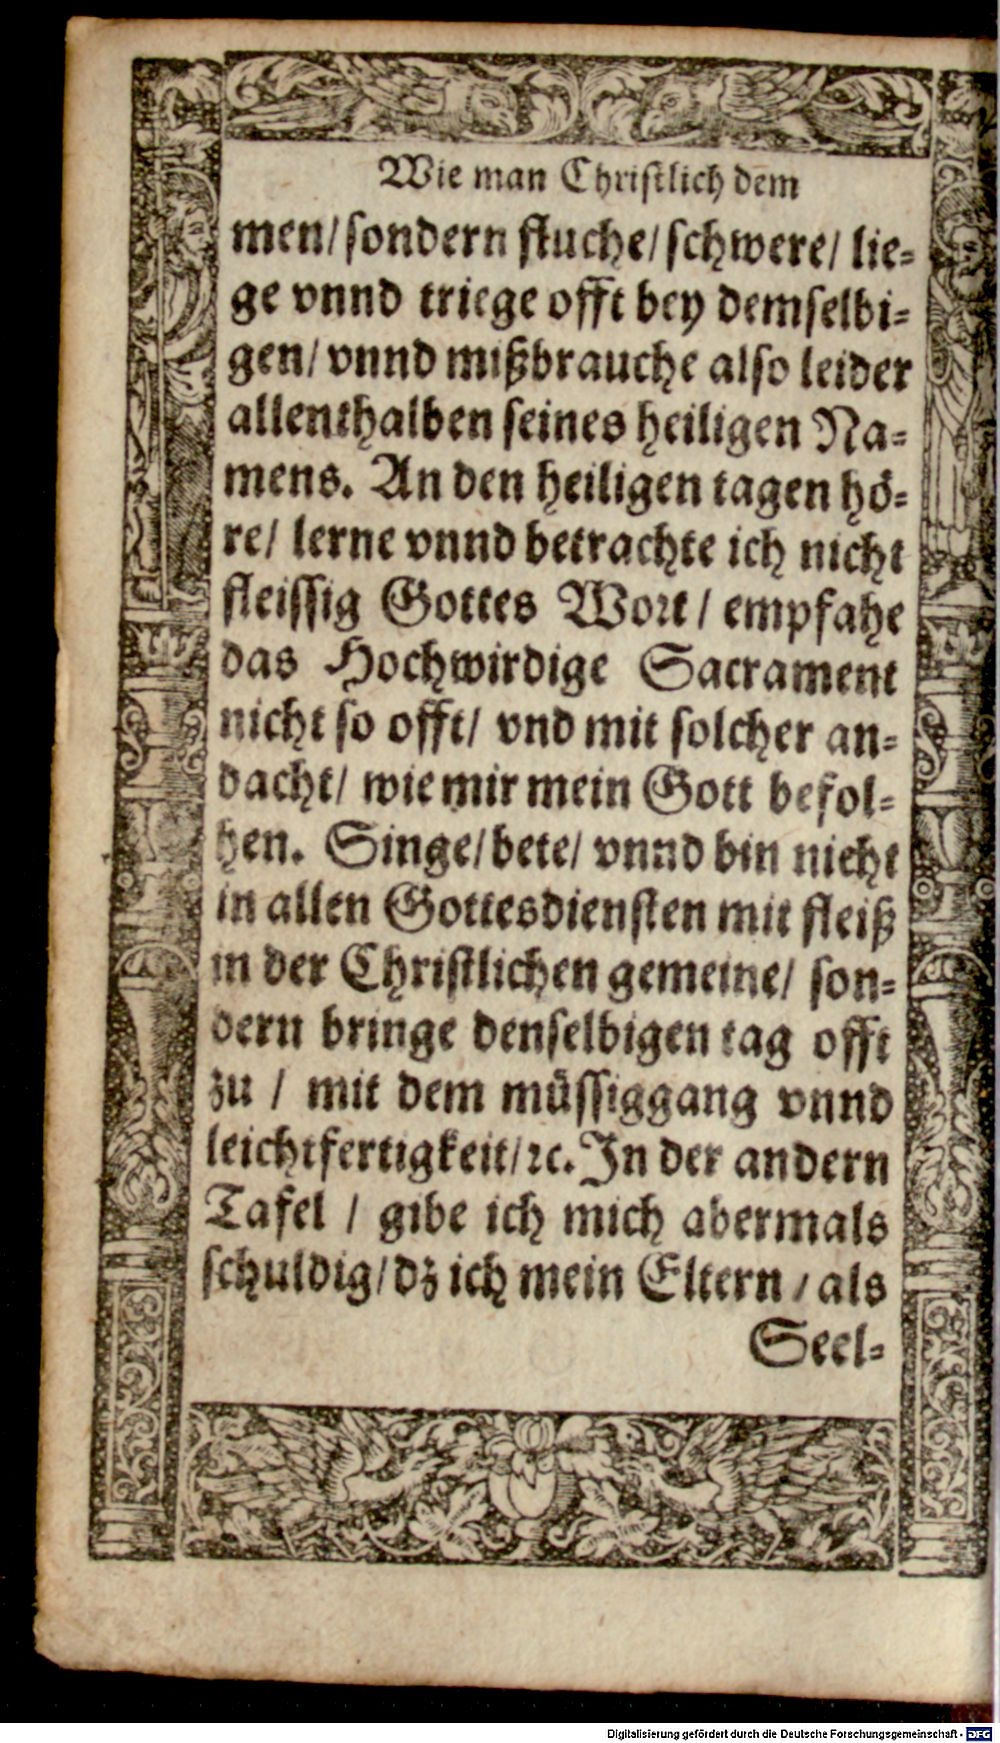 Wie man Christlich dem
men/ sondern fluche/ schwere/ lie-
ge vnnd triege offt bey demselbi-
gen/ vnnd mißbrauche also leider
allenthalben seines heiligen Na-
mens. An den heiligen tagen hö-
re/ lerne vnnd betrachte ich nicht
fleissig Gottes Wort/ empfahe
das Hochwirdige Sacrament
nicht so offt/ vnd mit solcher an-
dacht/ wie mir mein Gott befol-
hen. Singe/ bete/ vnnd bin nicht
in allen Gottesdiensten mit fleiß
in der Christlichen gemeine/ son-
dern bringe denselbigen tag offt
zu / mit dem müssiggang vnnd
leichtfertigkeit/ ꝛc. In der andern
Tafel / gibe ich mich abermals
schuldig/ dz ich mein Eltern / als
Seel-
Digitalisierung gefördert durch die Deutsche Forschungsgemeinschaft - DFG